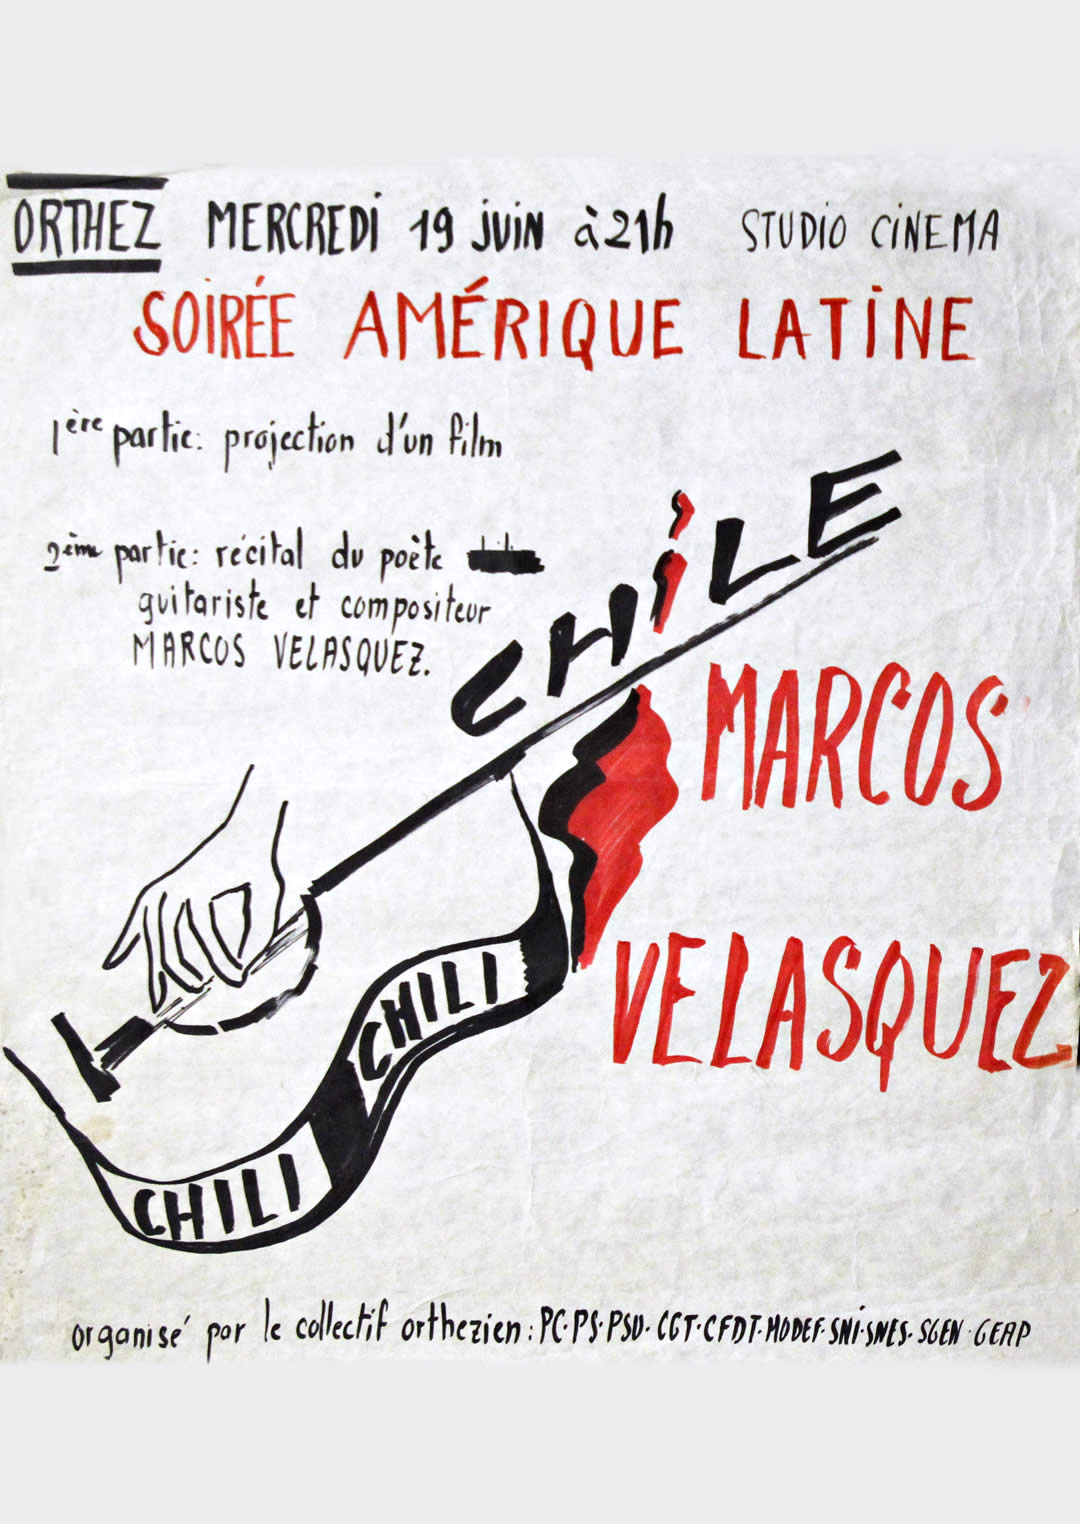 ORTHEZ MERCREDI 19 JUIN à 21h STUDIO CINEMA
SOIRÉE AMÉRIQUE LATINE
1ère partie: projection d'un film
2ème partie: récital du poète
guitariste et compositeur
MARCOS VELASQUEZ.
CHILE
MARCOS
VELASQUEZ
CHILI
CHILI
organisé par le collectif orthezien: PC·PS·PSU·CGT·CFDT·MODEF·SNI·SNES·SGEN·GEAP